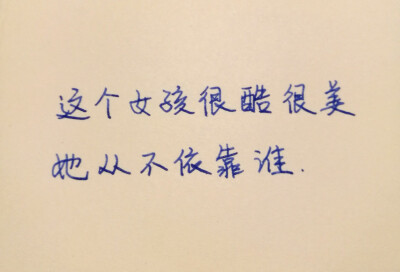 这个女孩很酷很美
她从不依靠谁.